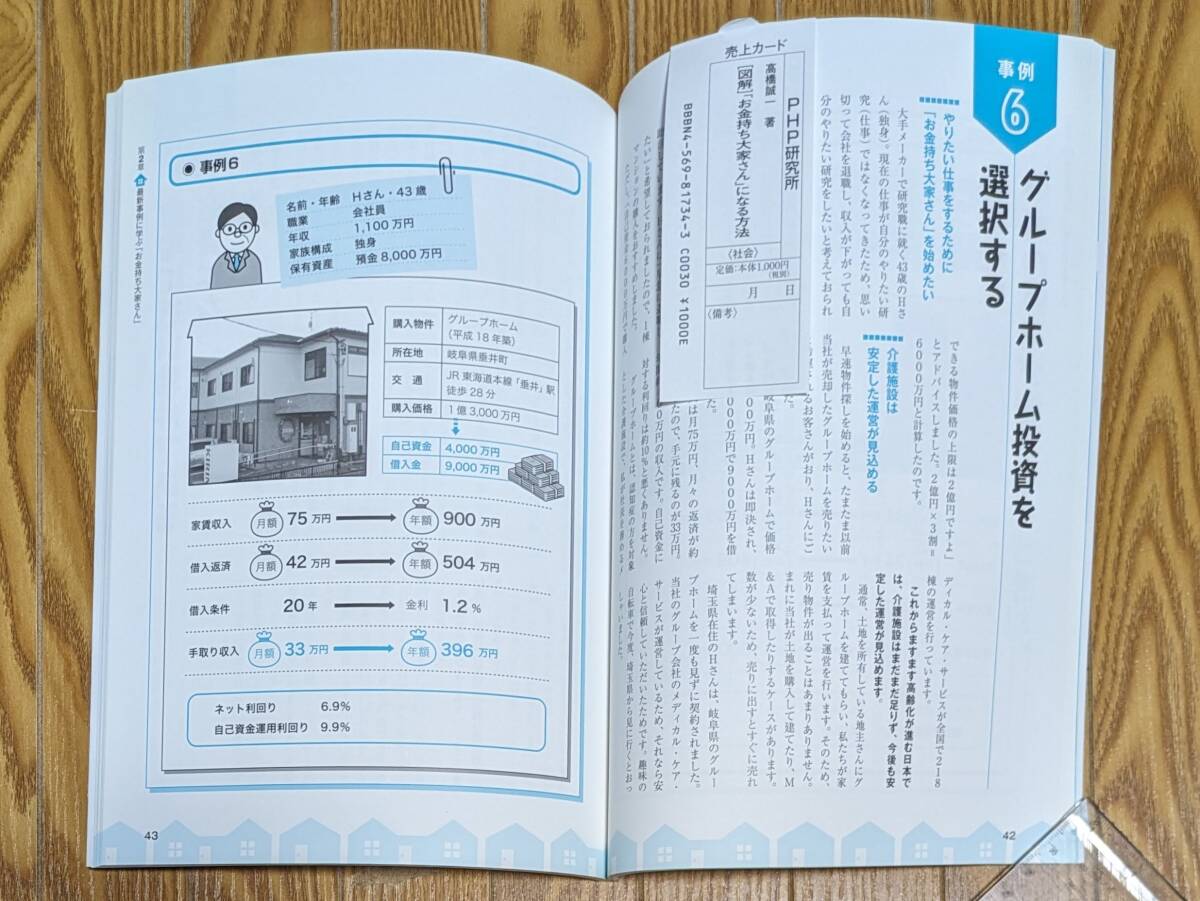 事例
6
グループホーム投資を
選択する
やりたい仕事をするために
「お金持ち大家さん」を始めたい
大手メーカーで研究職に就く43歳のHさ
ん(独身)。現在の仕事が自分のやりたい研
究(仕事)ではなくなってきたため、思い
切って会社を退職し、収入が下がっても自
分のやりたい研究をしたいと考えておられ
たい」と希望しておられましたので、1棟
マンションの購入をおすすめしました。
できる物件価格の上限は2億円ですよ」
とアドバイスしました。2億円×3割=
6000万円と計算したのです。
介護施設は
安定した運営が見込める
早速物件探しを始めると、たまたま以前
当社が売却したグループホームを売りたい
お客さんがおり、Hさんにご
た。
岐阜県のグループホームで価格
00万円。Hさんは即決され、
000万円で9000万円を借
た。
は月75万円、月々の返済が約
たので、手元に残るのが33万円。
0万円の収入です。自己資金に
対する利回りは約10%と悪くありません。
グループホームとは、認知症の方を対象
とした介護施設で、私が社長を務めるメ
ディカル・ケア・サービスが全国で218
棟の運営を行っています。
これからますます高齢化が進む日本で
は、介護施設はまだまだ足りず、今後も安
定した運営が見込めます。
通常、土地を所有している地主さんにグ
ループホームを建ててもらい、私たちが家
賃を支払って運営を行います。そのため、
売り物件が出ることはあまりありません。
まれに当社が土地を購入して建てたり、M
&Aで取得したりするケースがあります。
数が少ないため、売りに出すとすぐに売れ
てしまいます。
埼玉県在住のHさんは、岐阜県のグルー
プホームを一度も見ずに契約されました。
当社のグループ会社のメディカル・ケア・
サービスが運営しているため、それなら安
心と信頼していただいたためです。趣味の
自転車で今度、埼玉県から見に行くとおっ
しゃいました。
42
売上カード
PHP研究所
高橋誠一 著
[図解]「お金持ち大家さん」になる方法
〈社会〉
定価:本体1,000円
(税別)
月 日
〈備考〉
BBBN4-569-81734-3 C0030 ¥1000E
第2章 最新事例に学ぶ「お金持ち大家さん」
◉ 事例6
名前・年齢 Hさん・43歳
職業 会社員
年収 1,100万円
家族構成 独身
保有資産 預金8,000万円
購入物件 グループホーム
(平成18年築)
所在地 岐阜県垂井町
交通 JR東海道本線「垂井」駅
徒歩28分
購入価格 1億3,000万円
自己資金 4,000万円
借入金 9,000万円
家賃収入 月額 75万円 年額 900万円
借入返済 月額 42万円 年額 504万円
借入条件 20年 金利 1.2%
手取り収入 月額 33万円 年額 396万円
ネット利回り 6.9%
自己資金運用利回り 9.9%
43